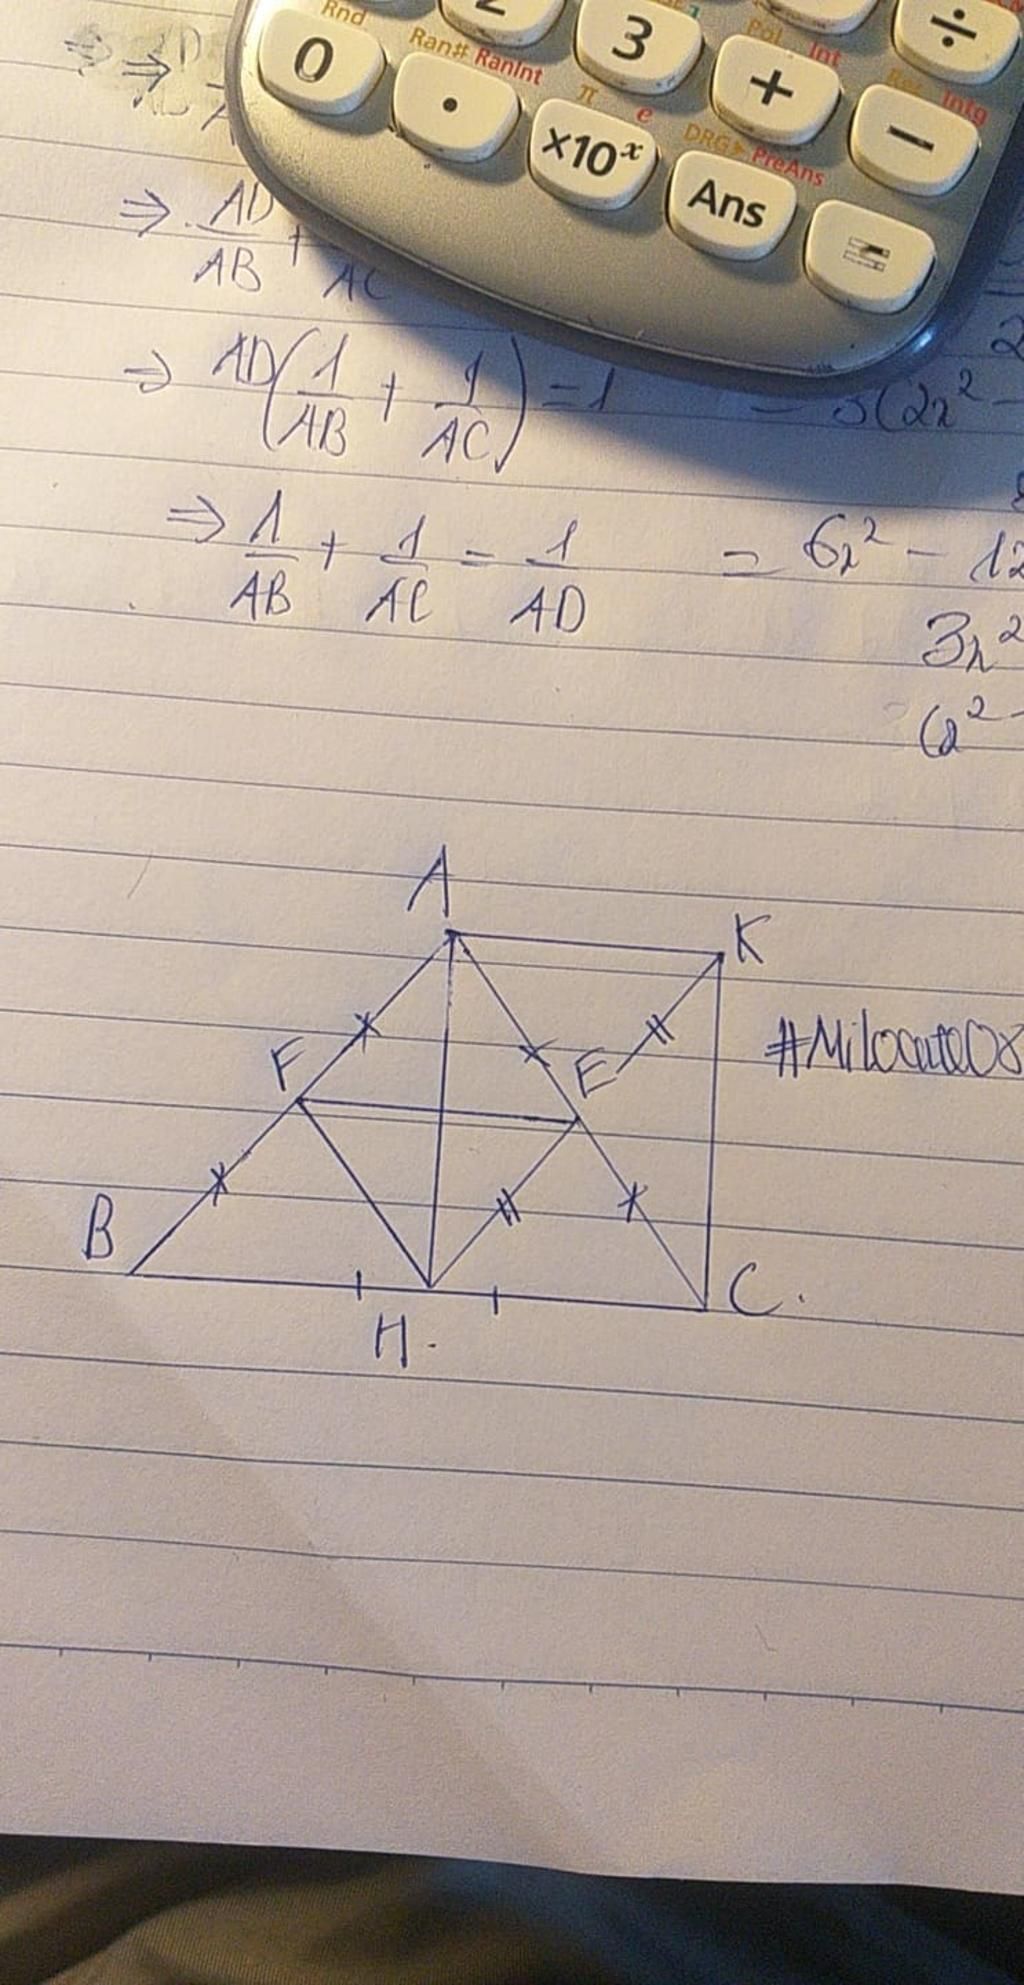 Rnd
0
Ran# RanInt
.
3
π e
×10ˣ
Pol Int
+
DRG▸ PreAns
Ans
÷
Intg
−
=
⇒ AD/AB +
AC
⇒ AD(1/AB + 1/AC) = 1
⇒ 1/AB + 1/AC = 1/AD
= 3(2x² −
= 6x² − 12
3x²
A
K
F
E
#Milocute08
B
H.
C.